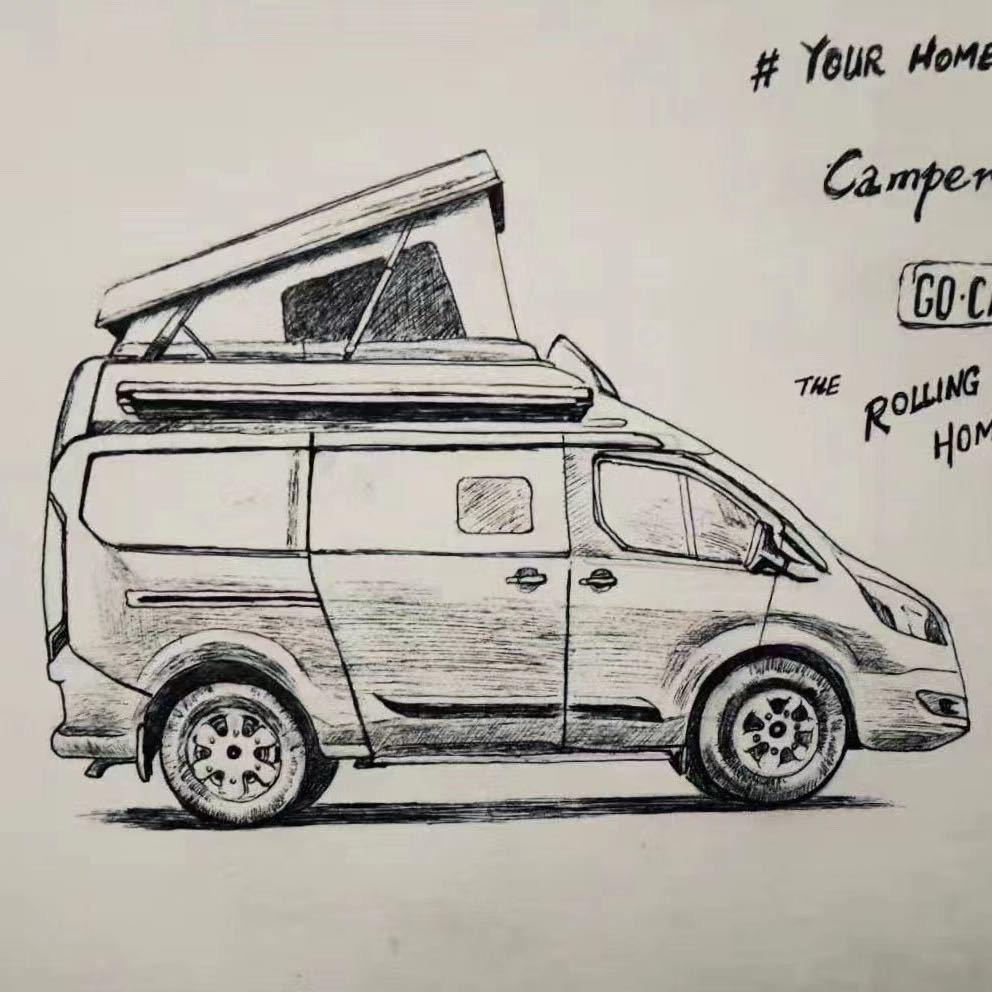 # YOUR HOME
Camper
GO·CA
THE
ROLLING
HOM